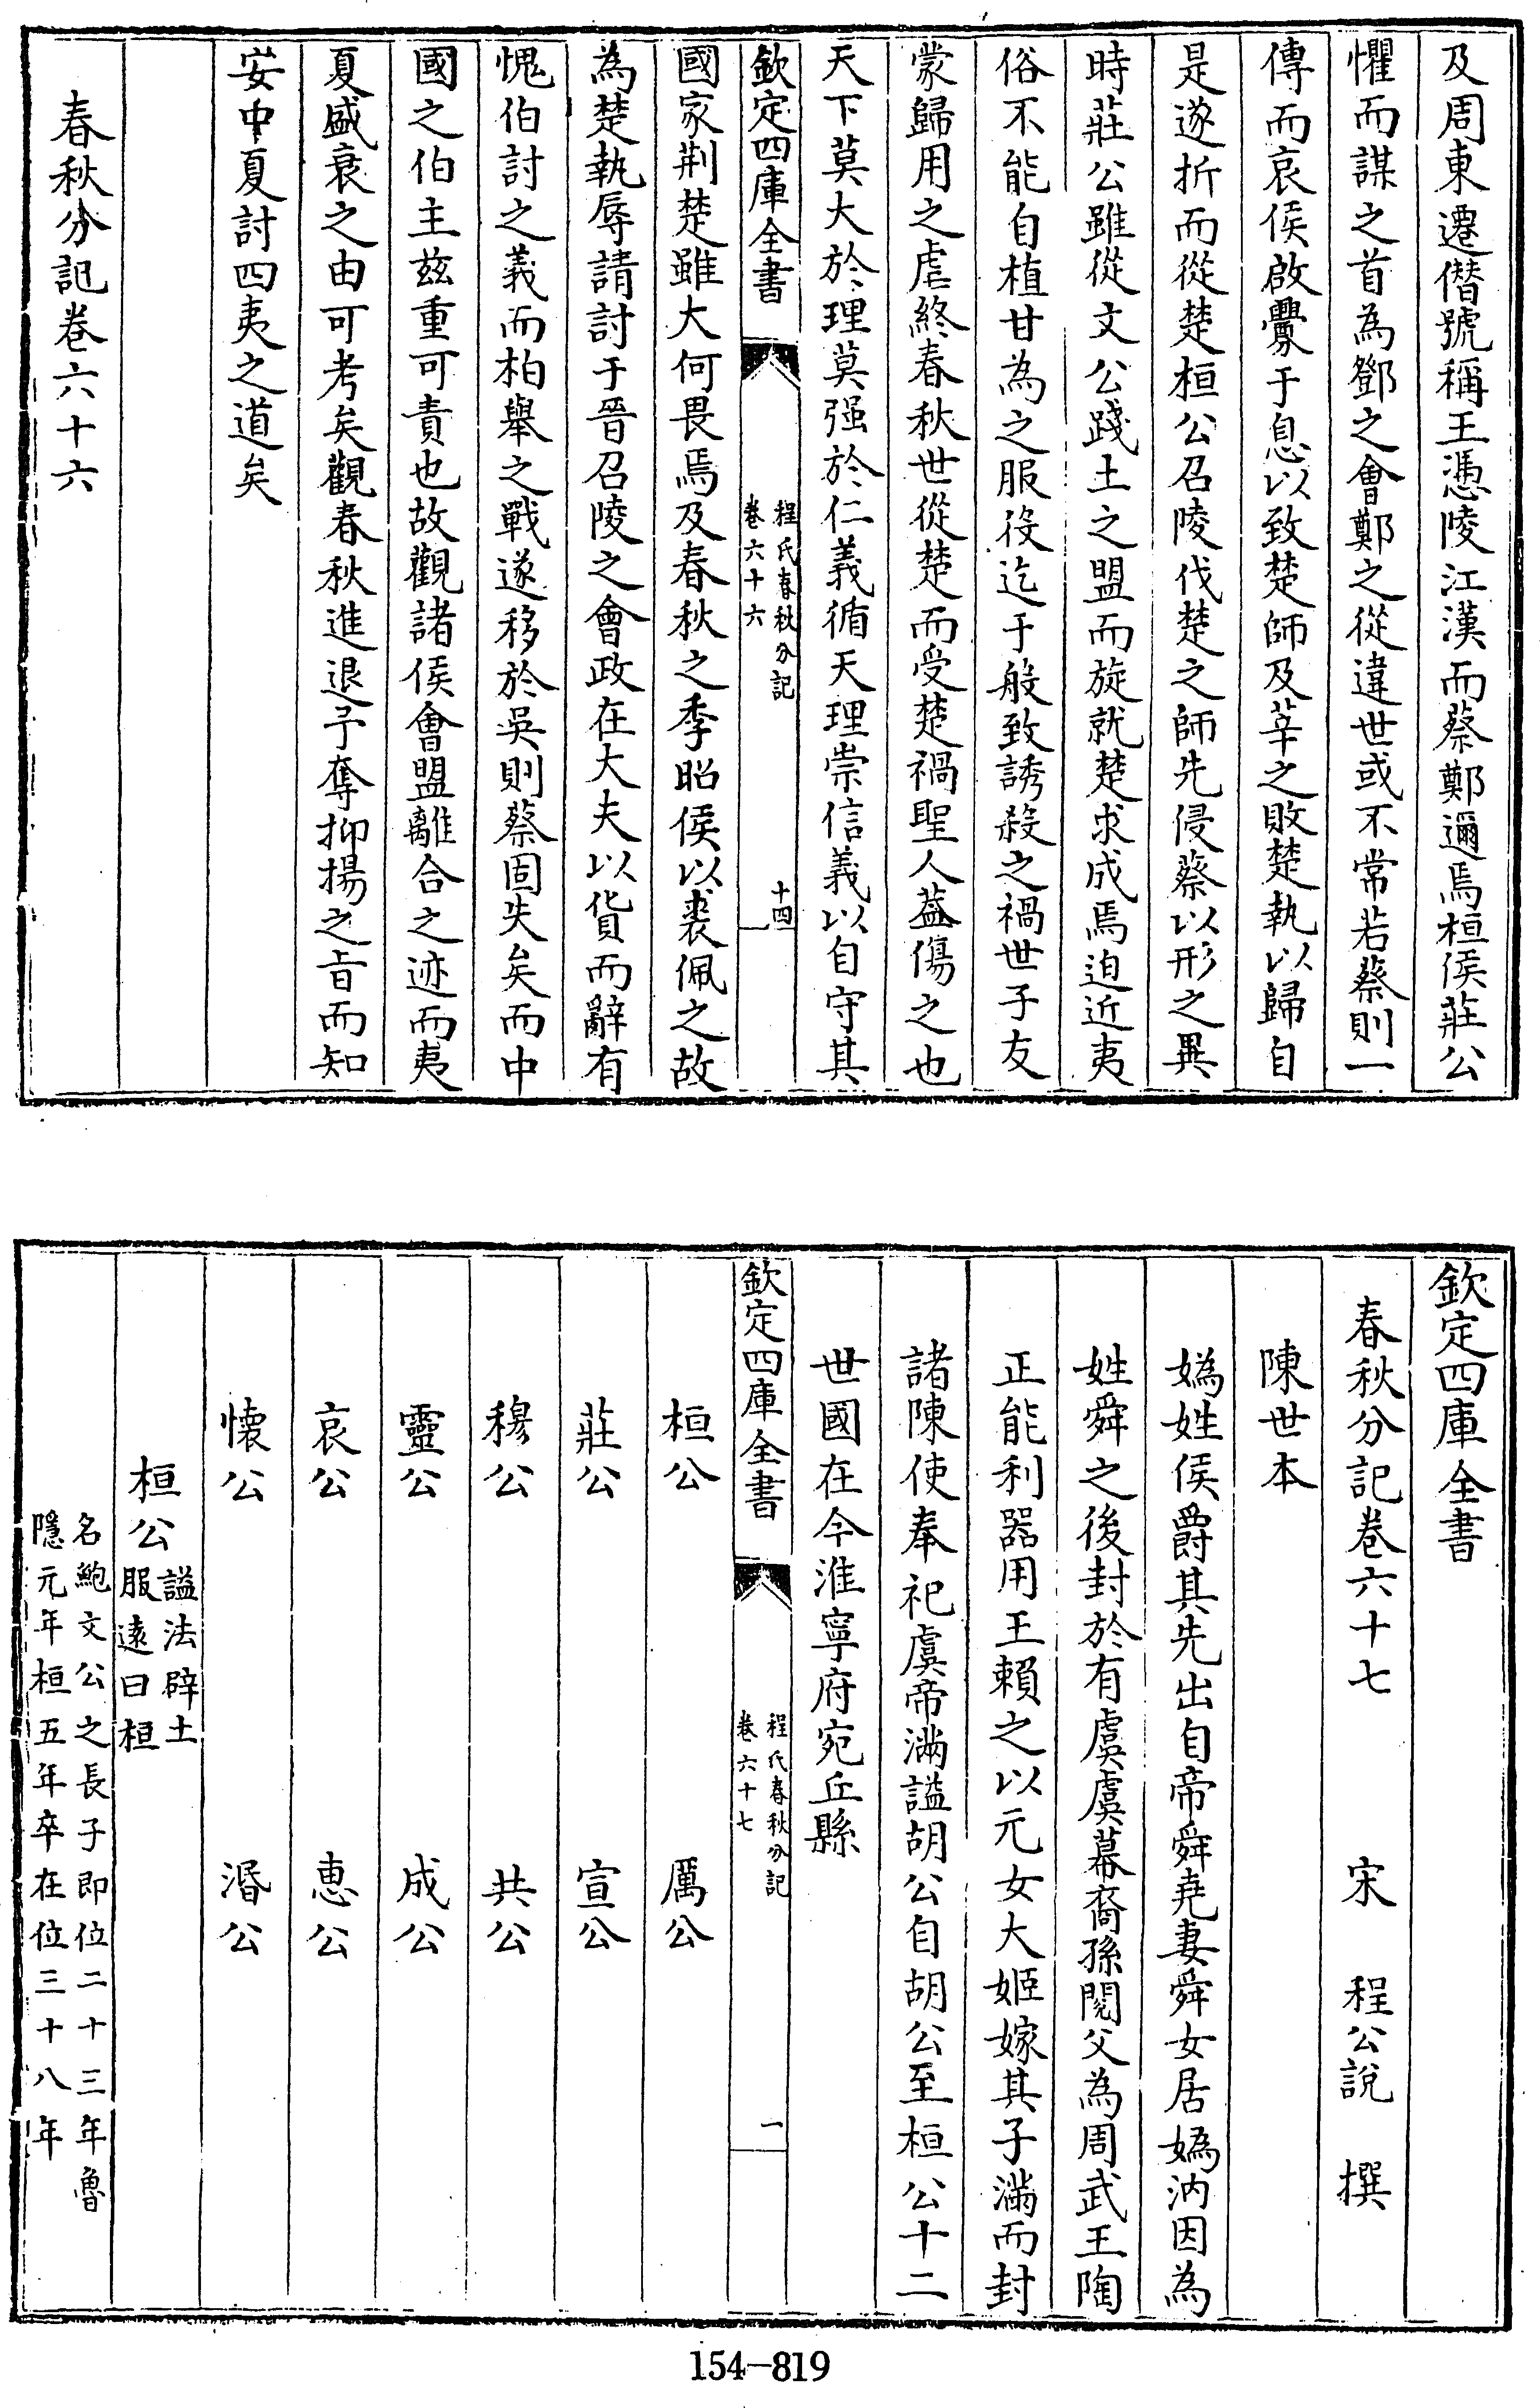 及周東遷僭號稱王憑陵江漢而蔡鄭邇焉桓侯莊公
懼而謀之首為鄧之會鄭之從違世或不常若蔡則一
傳而哀侯啟釁于息以致楚師及莘之敗楚執以歸自
是遂折而從楚桓公召陵伐楚之師先侵蔡以形之異
時莊公雖從文公踐土之盟而旋就楚求成焉迫近夷
俗不能自植甘為之服役迄于般致誘殺之禍世子友
蒙歸用之虐終春秋世從楚而受楚禍聖人蓋傷之也
天下莫大於理莫强於仁義循天理崇信義以自守其
欽定四庫全書
程氏春秋分記
卷六十六
十四
國家荆楚雖大何畏焉及春秋之季昭侯以裘佩之故
為楚執辱請討于晉召陵之會政在大夫以貨而辭有
愧伯討之義而柏舉之戰遂移於吳則蔡固失矣而中
國之伯主茲重可責也故觀諸侯會盟離合之迹而夷
夏盛衰之由可考矣觀春秋進退予奪抑揚之旨而知
安中夏討四夷之道矣
春秋分記卷六十六
欽定四庫全書
春秋分記卷六十七
宋 程公說 撰
陳世本
媯姓侯爵其先出自帝舜堯妻舜女居媯汭因為
姓舜之後封於有虞虞幕裔孫閼父為周武王陶
正能利器用王賴之以元女大姬嫁其子滿而封
諸陳使奉祀虞帝滿謚胡公自胡公至桓公十二
世國在今淮寧府宛丘縣
欽定四庫全書
程氏春秋分記
卷六十七
一
桓公 厲公
莊公 宣公
穆公 共公
靈公 成公
哀公 惠公
懷公 湣公
桓公
謚法辟土
服遠曰桓
名鮑文公之長子即位二十三年魯
隱元年桓五年卒在位三十八年
154—819